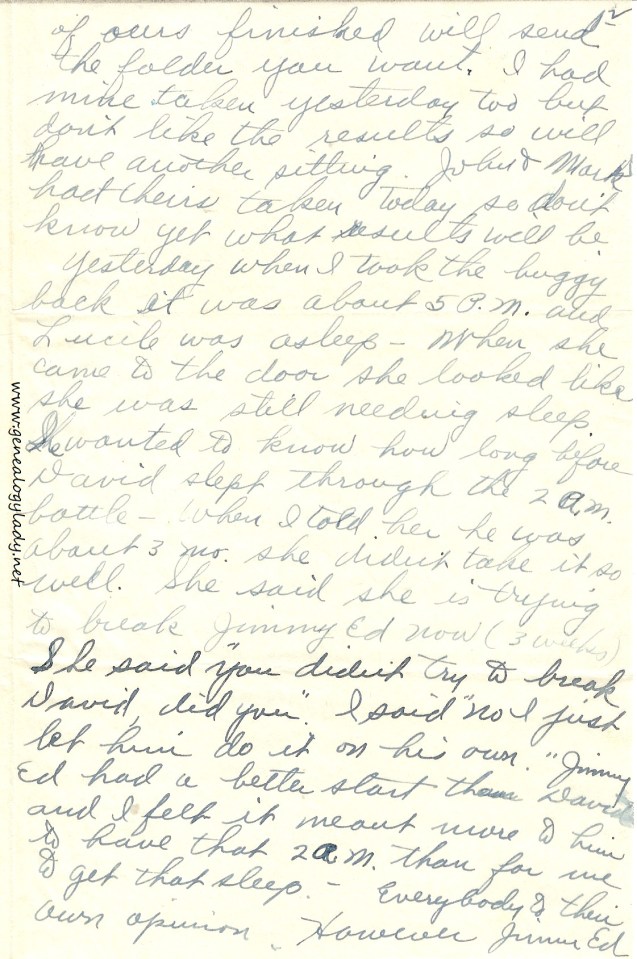 2
of ours finished will send
the folder you want. I had
mine taken yesterday too but
don't like the results so will
have another sitting. John & Mark
had theirs taken today so don't
know yet what results will be
Yesterday when I took the buggy
back it was about 5 P.M. and
Lucile was asleep – When she
came to the door she looked like
she was still needing sleep
She wanted to know how long before
David slept through the 2 A.M.
bottle – When I told her he was
about 3 mo. she didn't take it so
well. She said she is trying
to break Jimmy Ed now (3 weeks)
She said "you didn't try to break
David, did you". I said "no I just
let him do it on his own." Jimmy
Ed had a better start than David
and I felt it meant more to him
to have that 2 A.M. than for me
to get that sleep. – Everybody to their
own opinion. However Jimmy Ed
www.genealogylady.net